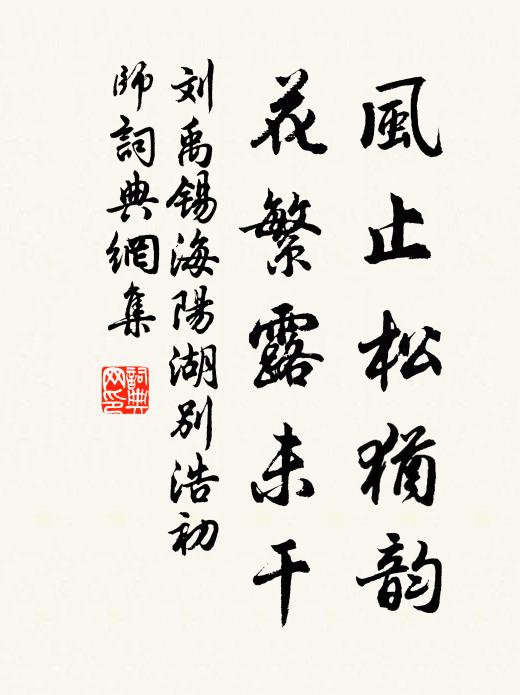 風止松猶韵
花繁露未干
刘禹锡海陽湖别浩初
師詞典網集
詞典网印